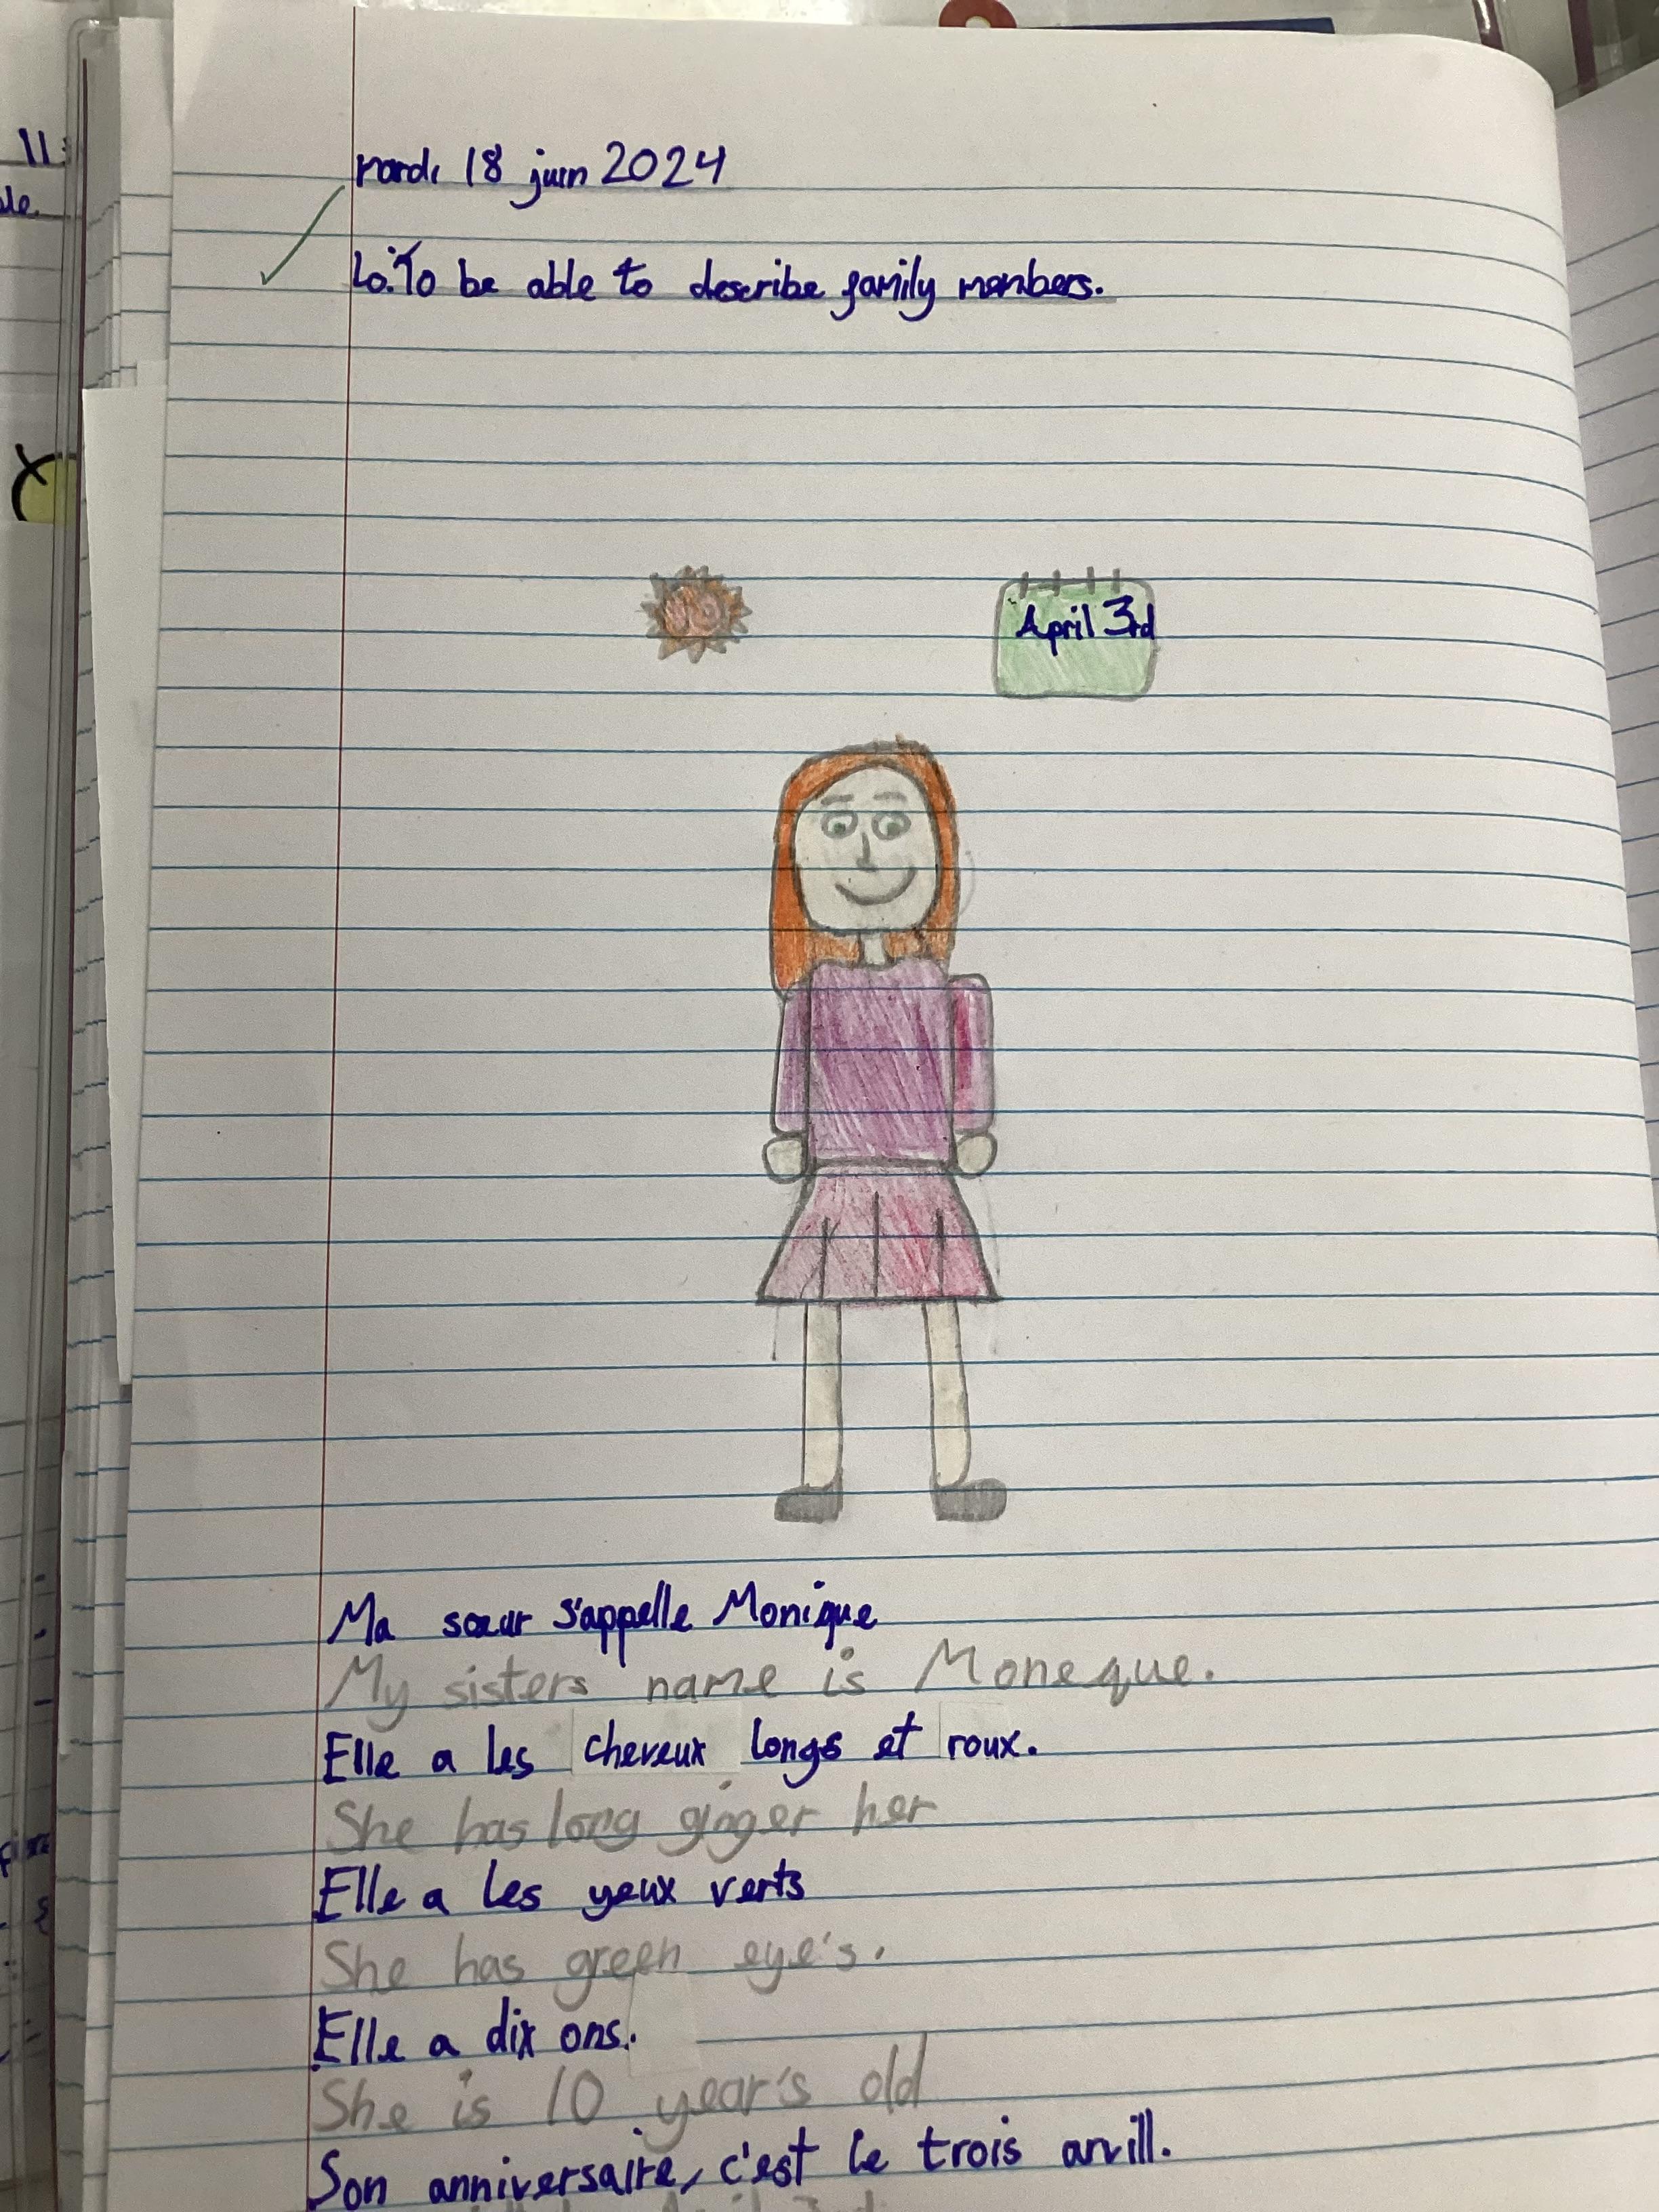 11
mardi 18 juin 2024
Lo: To be able to describe family members.
10
April 3rd
Ma sœur s'appelle Monique
My sisters name is Moneque.
Elle a les cheveux longs et roux.
She has long ginger her
Elle a les yeux verts
She has green eye's.
Elle a dix ons.
She is 10 year's old
Son anniversaire, c'est le trois arvill.